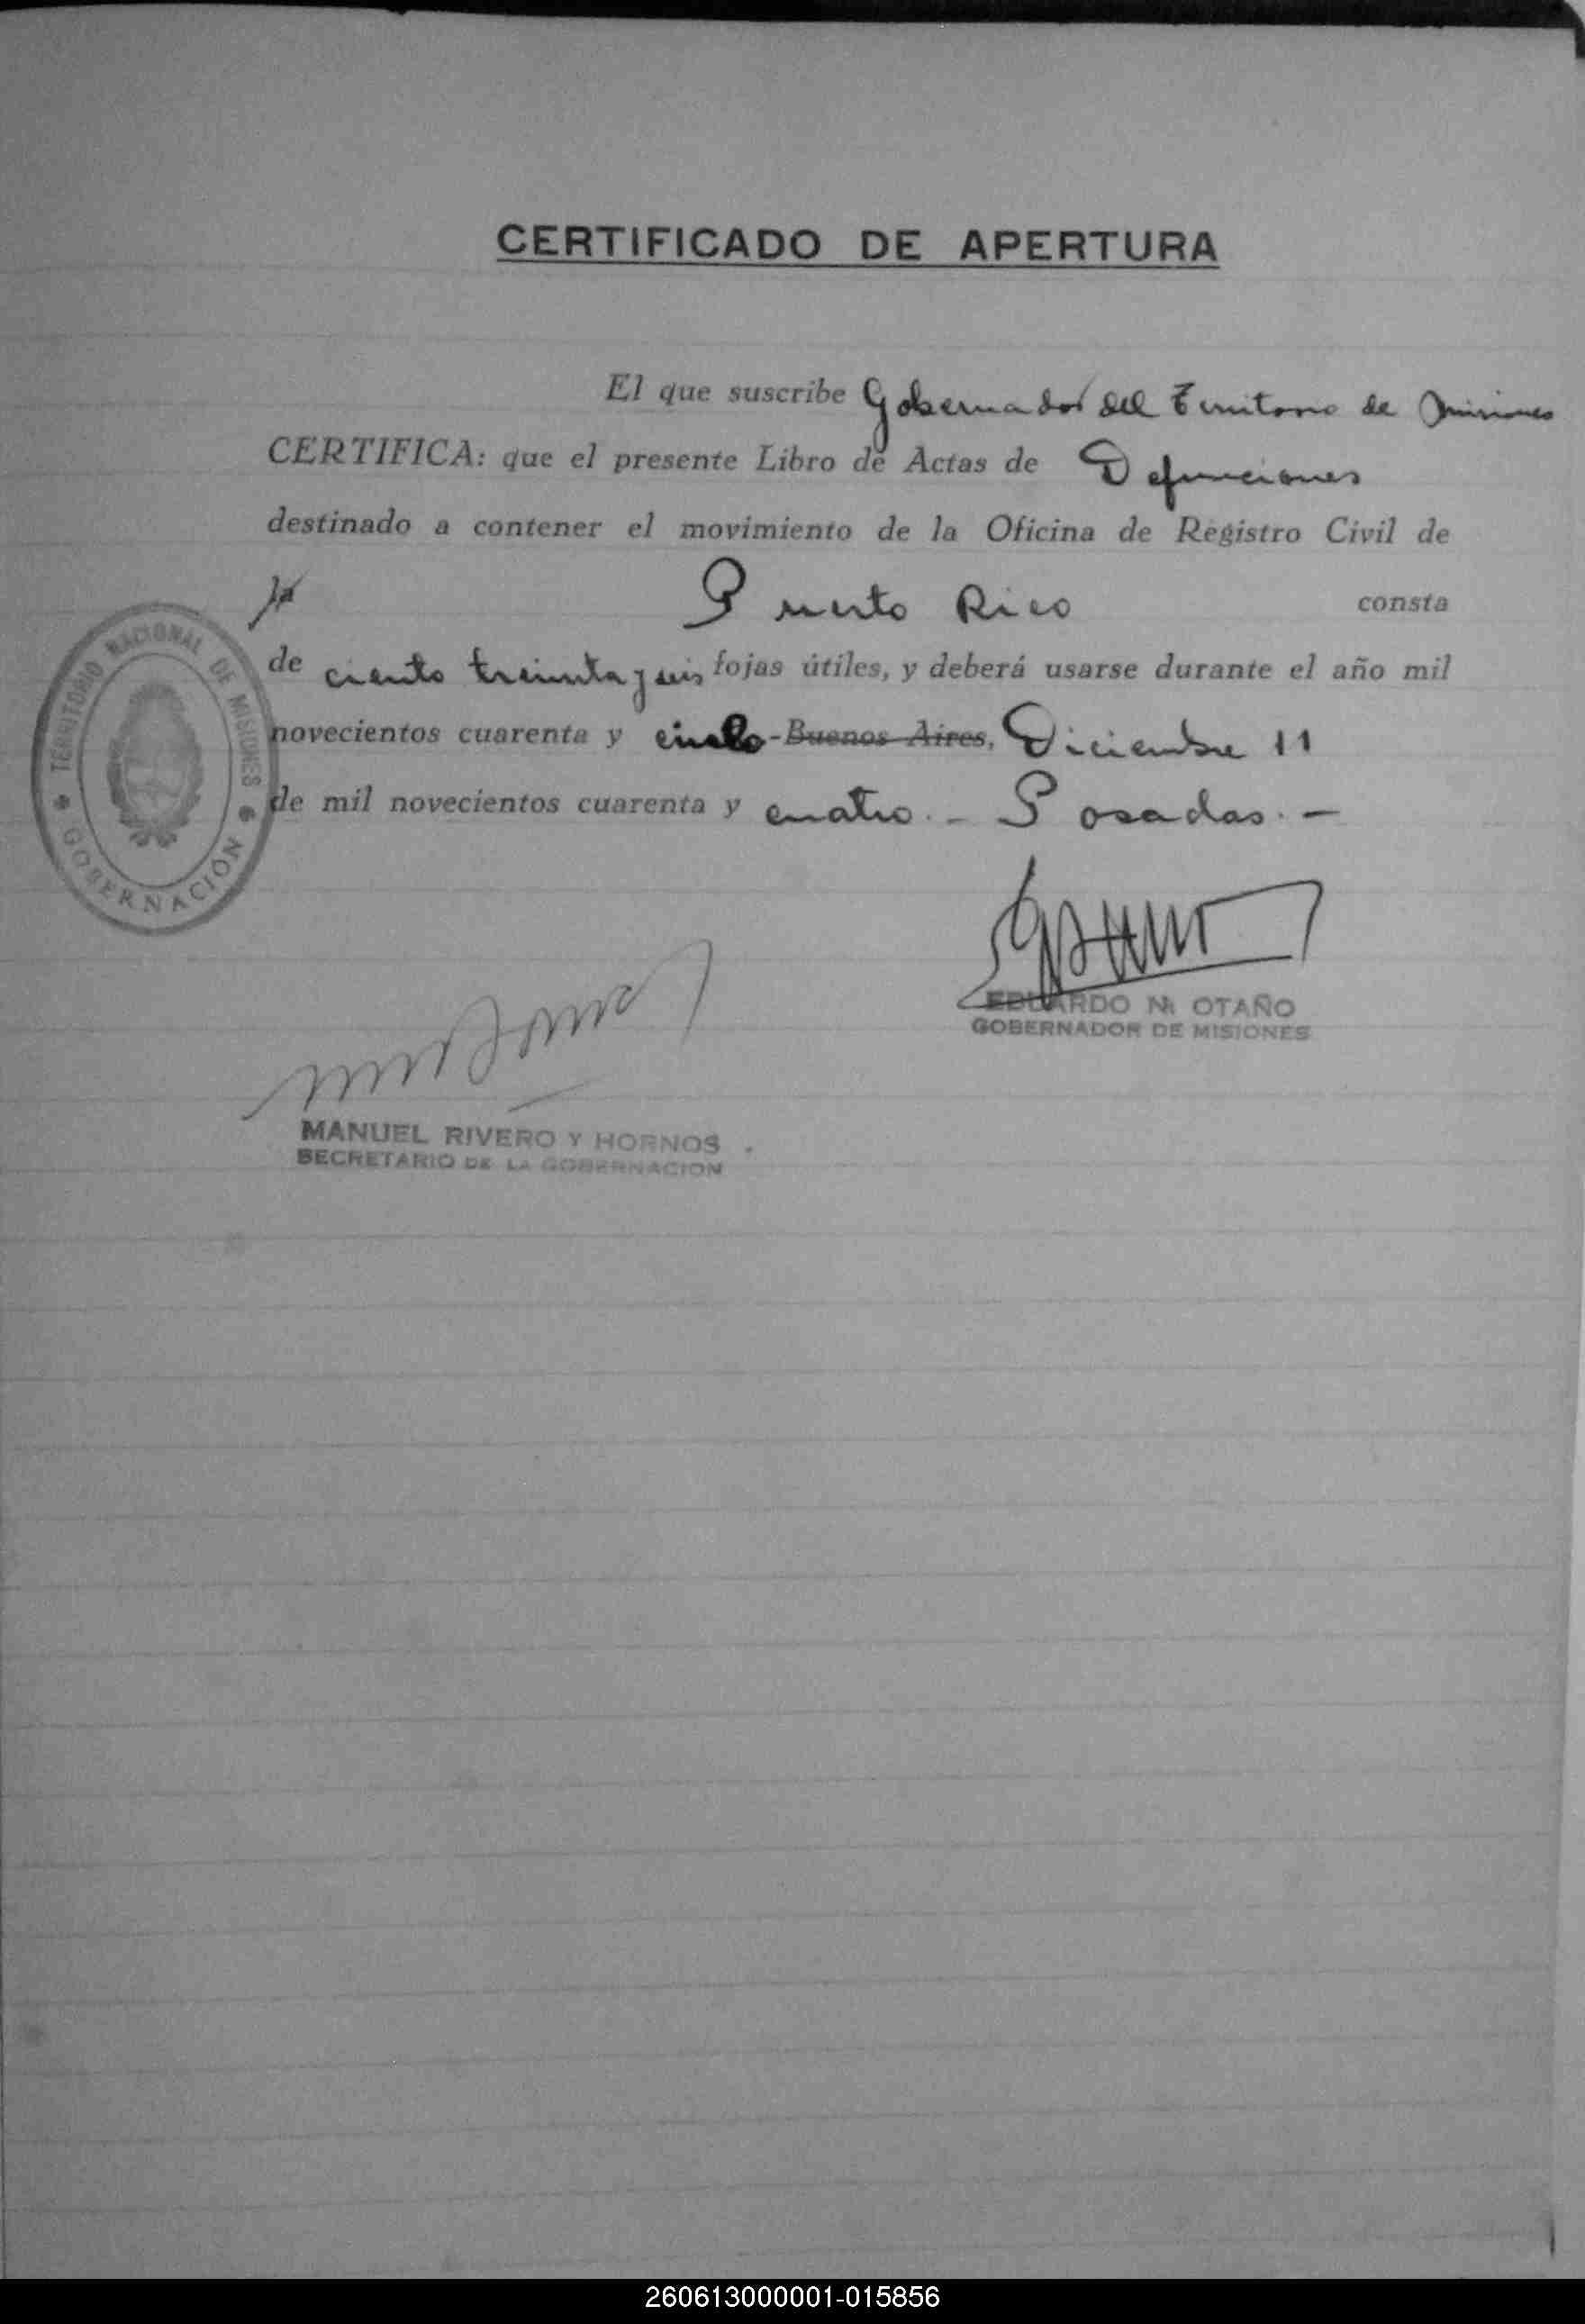 CERTIFICADO DE APERTURA
El que suscribe Gobernador del Territorio de Misiones
CERTIFICA: que el presente Libro de Actas de Defunciones
destinado a contener el movimiento de la Oficina de Registro Civil de
la Puerto Rico consta
de ciento treinta y seis fojas útiles, y deberá usarse durante el año mil
novecientos cuarenta y cinco - Buenos Aires, Diciembre 11
de mil novecientos cuarenta y cuatro. - Posadas. -
TERRITORIO NACIONAL DE MISIONES
GOBERNACIÓN
EDUARDO N. OTAÑO
GOBERNADOR DE MISIONES
MANUEL RIVERO Y HORNOS
SECRETARIO DE LA GOBERNACION
260613000001-015856